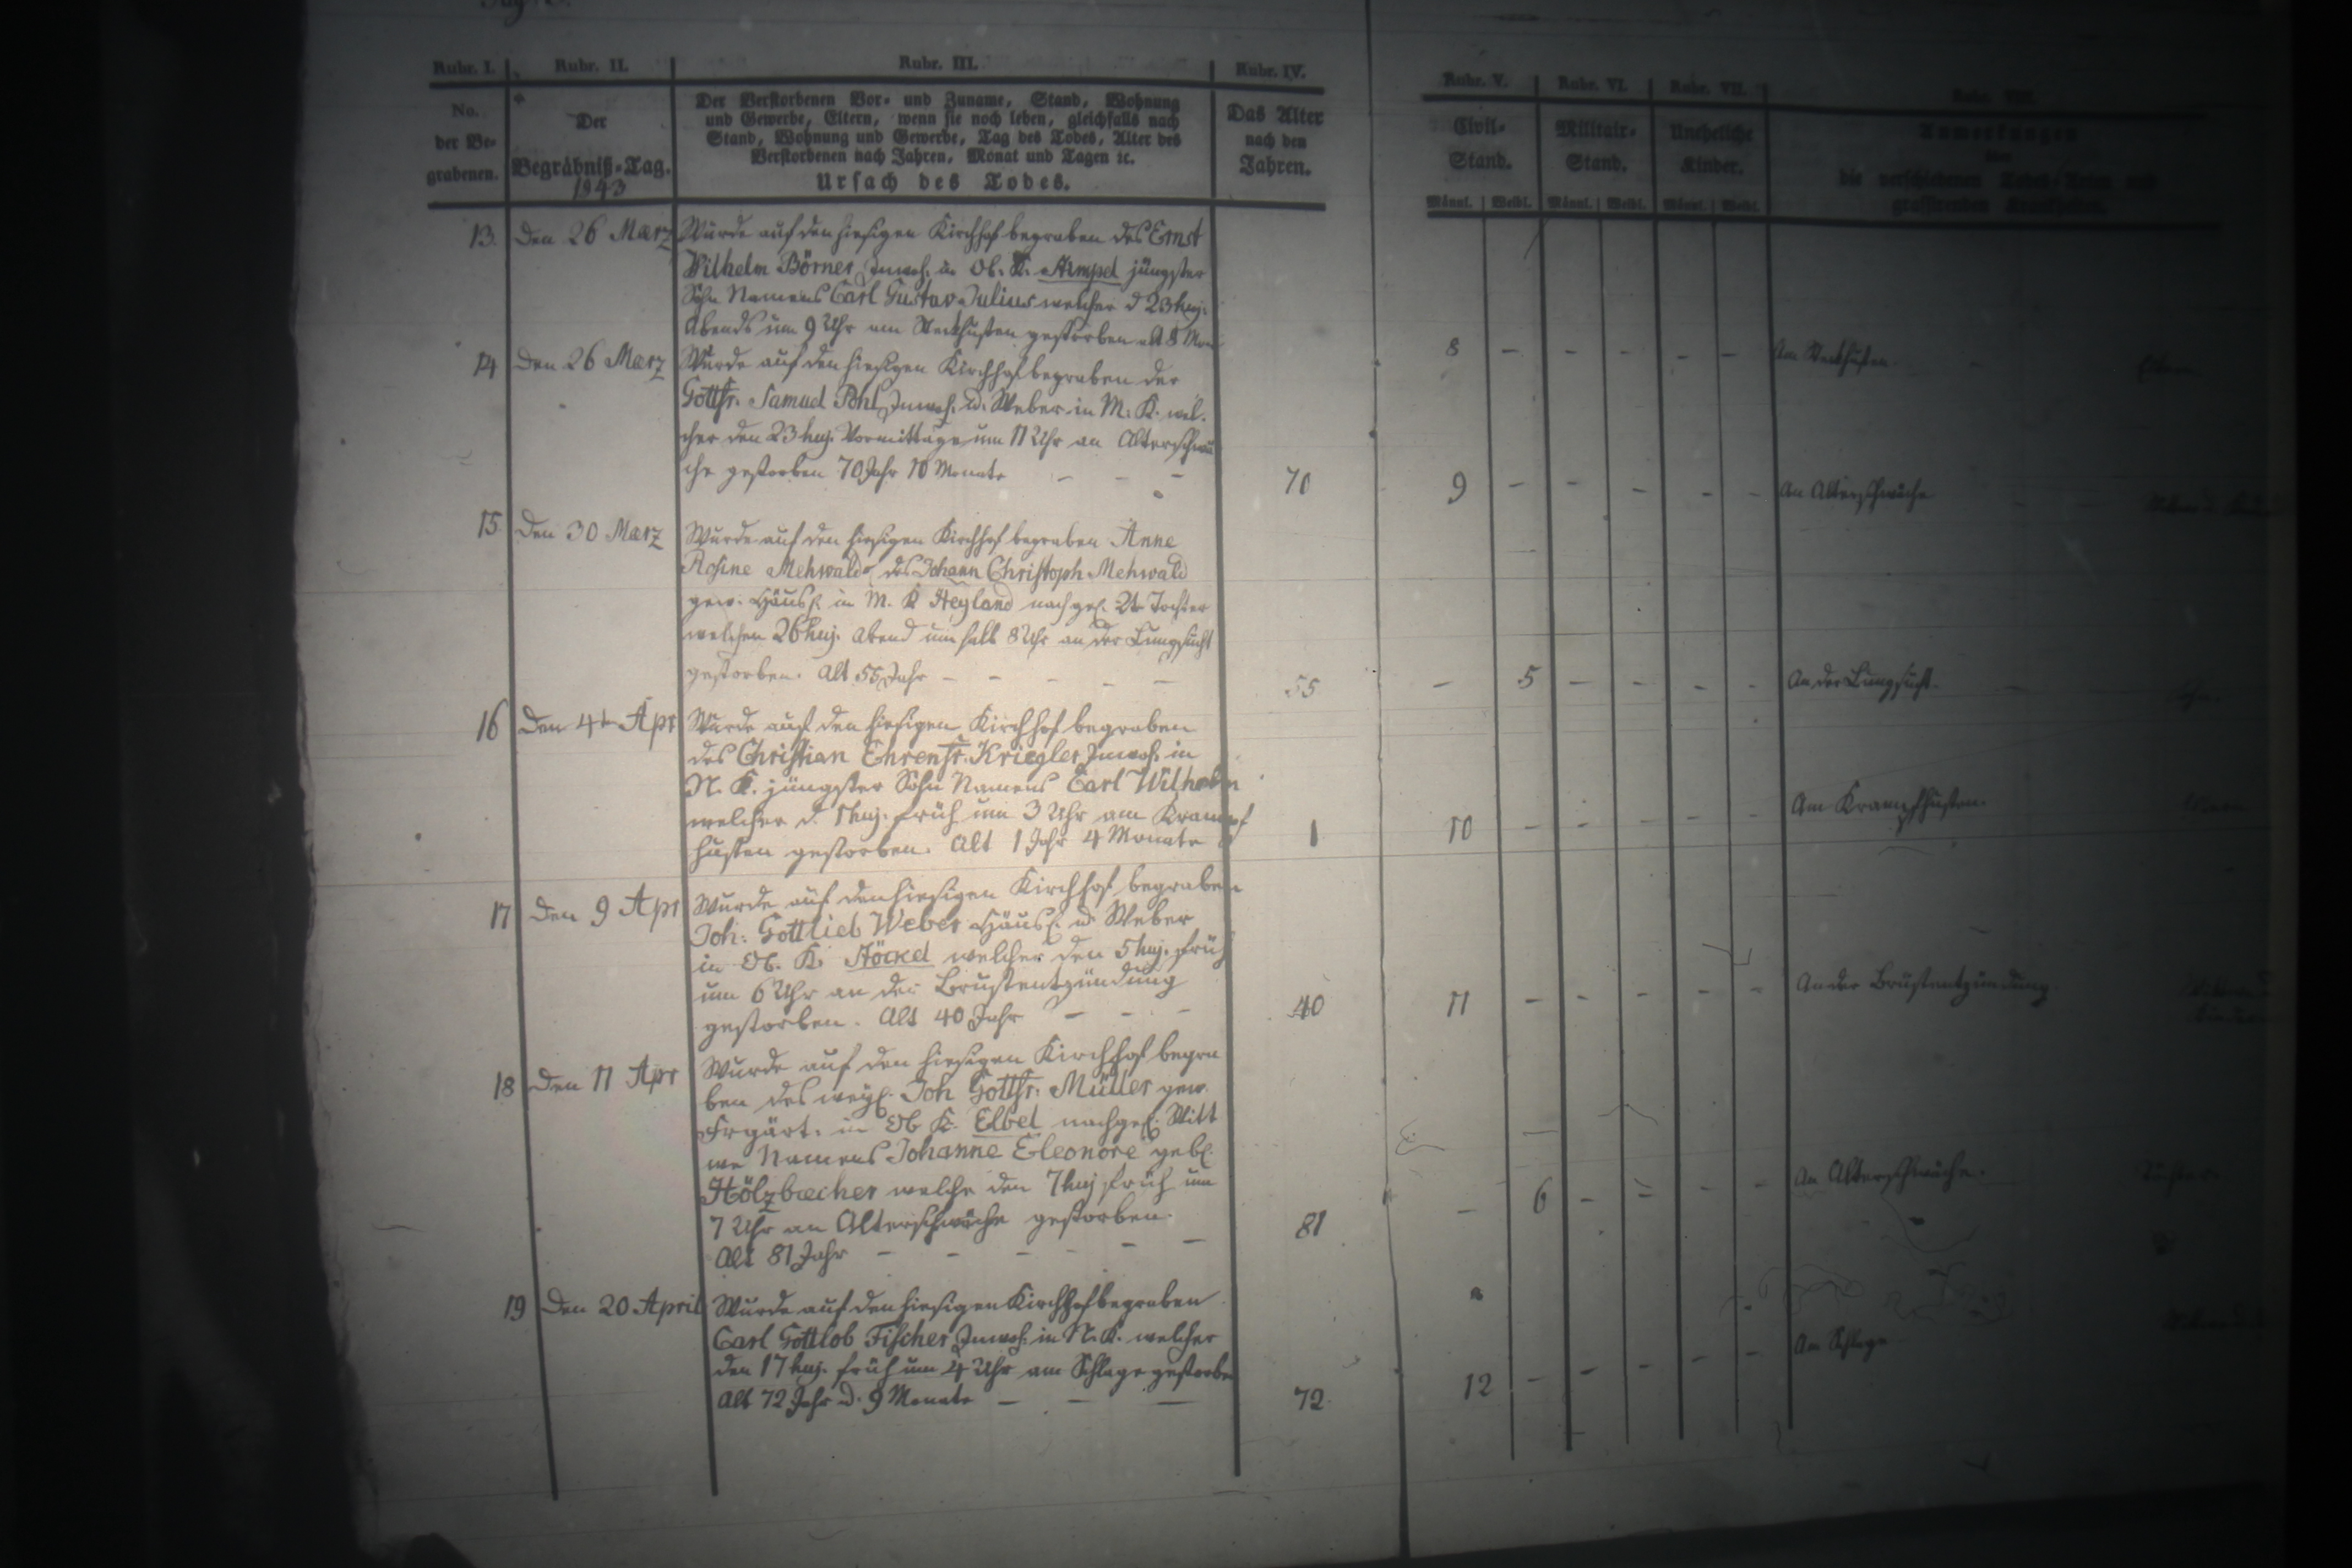 Rubr. I. Rubr. II. Rubr. III. Rubr. IV. Rubr. V. Rubr. VI. Rubr. VII.
No. der Be-grabenen.
Der Begräbniß-Tag. 1843
Der Verstorbenen Vor- und Zuname, Stand, Wohnung
und Gewerbe, Eltern, wenn sie noch leben, gleichfalls nach
Stand, Wohnung und Gewerbe, Tag des Todes, Alter des
Verstorbenen nach Jahren, Monat und Tagen ꝛc.
Ursach des Todes.
Das Alter nach den Jahren.
Civil-Stand.
Militair-Stand.
Uneheliche Kinder.
Anmerkungen
über
die verschiedenen Todes-Arten und
grassirenden Krankheiten.
Männl. Weibl. Männl. Weibl. Männl. Weibl.
13. Den 26 Maerz Wurde auf den hiesigen Kirchhof begraben des Ernst
Wilhelm Börner Inwoh. in Ob. K. jüngster
Sohn Namens Carl Gustav Julius welcher d 23 huj.
Abends um 9 Uhr am Stickhusten gestorben alt 8 Mon
8 – – – – – Am Stickhusten.
14 Den 26 Maerz Wurde auf den hiesigen Kirchhof begraben der
Gottfr. Samuel Pohl Inwoh. u. Weber in M. K. wel-
cher den 23 huj. Vormittags um 11 Uhr an Alterschwä
che gestorben 70 Jahr 10 Monate – – –
70 9 – – – – – An Alterschwäche
15 Den 30 Maerz Wurde auf den hiesigen Kirchhof begraben Anne
Rosine Mehwald des Johann Christoph Mehwald
gew. Häusl. in M. K Heyland nachgel. 2te Tochter
welche 26 huj. Abend um halb 8 Uhr an der Lungsucht
gestorben. Alt 55 Jahr – – – – –
55 – 5 – – – – An der Lungsucht.
16 Den 4t Apr Wurde auf den hiesigen Kirchhof begraben
des Christian Ehrenfr. Kriegler Inwoh. in
N. K. jüngster Sohn Namens Carl Wilhelm
welcher d. 1 huj. früh um 3 Uhr am Krampf
husten gestorben. Alt 1 Jahr 4 Monate
1 10 – – – – – Am Krampfhusten.
17 Den 9 Apr Wurde auf den hiesigen Kirchhof begraben
Joh: Gottlieb Weber Häusl. u. Weber
in Ob. K. Höckel welcher den 5 huj. früh
um 6 Uhr an der Brustentzündung
gestorben. Alt 40 Jahr – – –
40 11 – – – – – An der Brustentzündung.
18 Den 11 Apr Wurde auf den hiesigen Kirchhof begra
ben des weyl. Joh Gottfr. Müller gew.
Frgärt. in Ob K. Elbel nachgel. Witt
we Namens Johanne Eleonore gebl.
Hölzbecher welche den 7 huj früh um
7 Uhr an Alterschwäche gestorben.
Alt 81 Jahr – – – – – –
81 – 6 – – – – An Alterschwäche.
19 Den 20 April Wurde auf den hiesigen Kirchhof begraben
Carl Gottlob Fischer Inwoh. in N. K. welcher
den 17 huj. früh um 4 Uhr am Schlage gestorben
Alt 72 Jahr u. 9 Monate – – –
72 12 – – – – – Am Schlage